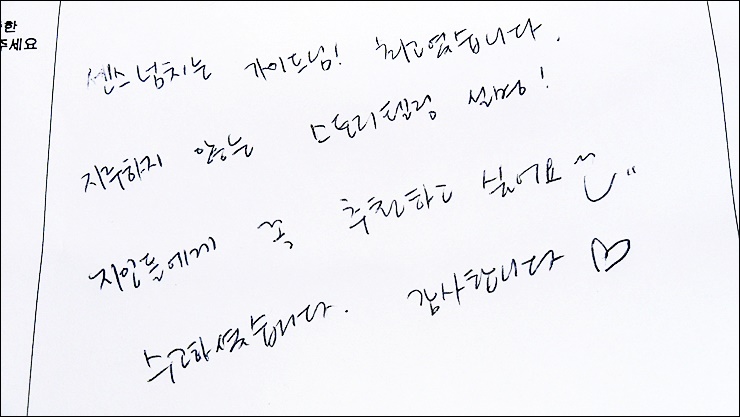 한
주세요
센스넘치는 가이드님! 최고였습니다.
지루하지 않는 스토리텔링 설명!
지인들에게 꼭 추천하고 싶어요~
수고하셨습니다. 감사합니다 ♡